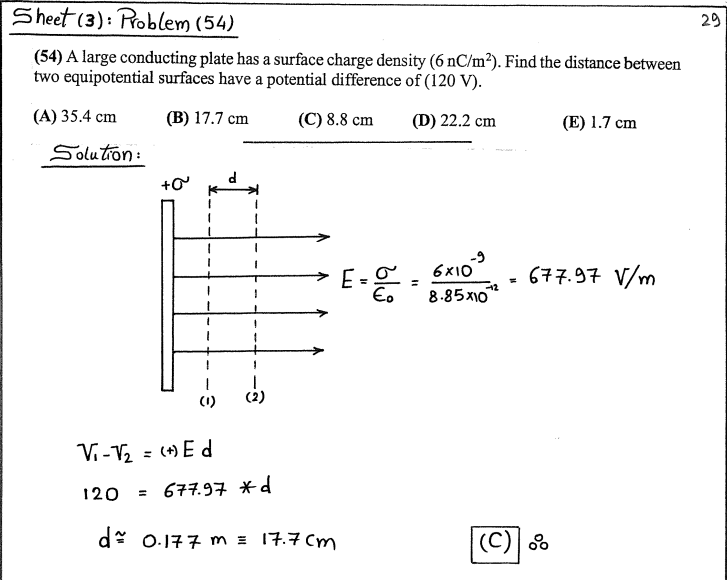 Sheet (3): Problem (54)
29
(54) A large conducting plate has a surface charge density (6 nC/m²). Find the distance between
two equipotential surfaces have a potential difference of (120 V).
(A) 35.4 cm (B) 17.7 cm (C) 8.8 cm (D) 22.2 cm (E) 1.7 cm
Solution:
+σ d
E = σ/ϵ₀ = 6×10⁻⁹/8.85×10⁻¹² = 677.97 V/m
(1) (2)
V₁-V₂ = (+) E d
120 = 677.97 * d
d ≅ 0.177 m ≡ 17.7 cm
(C)